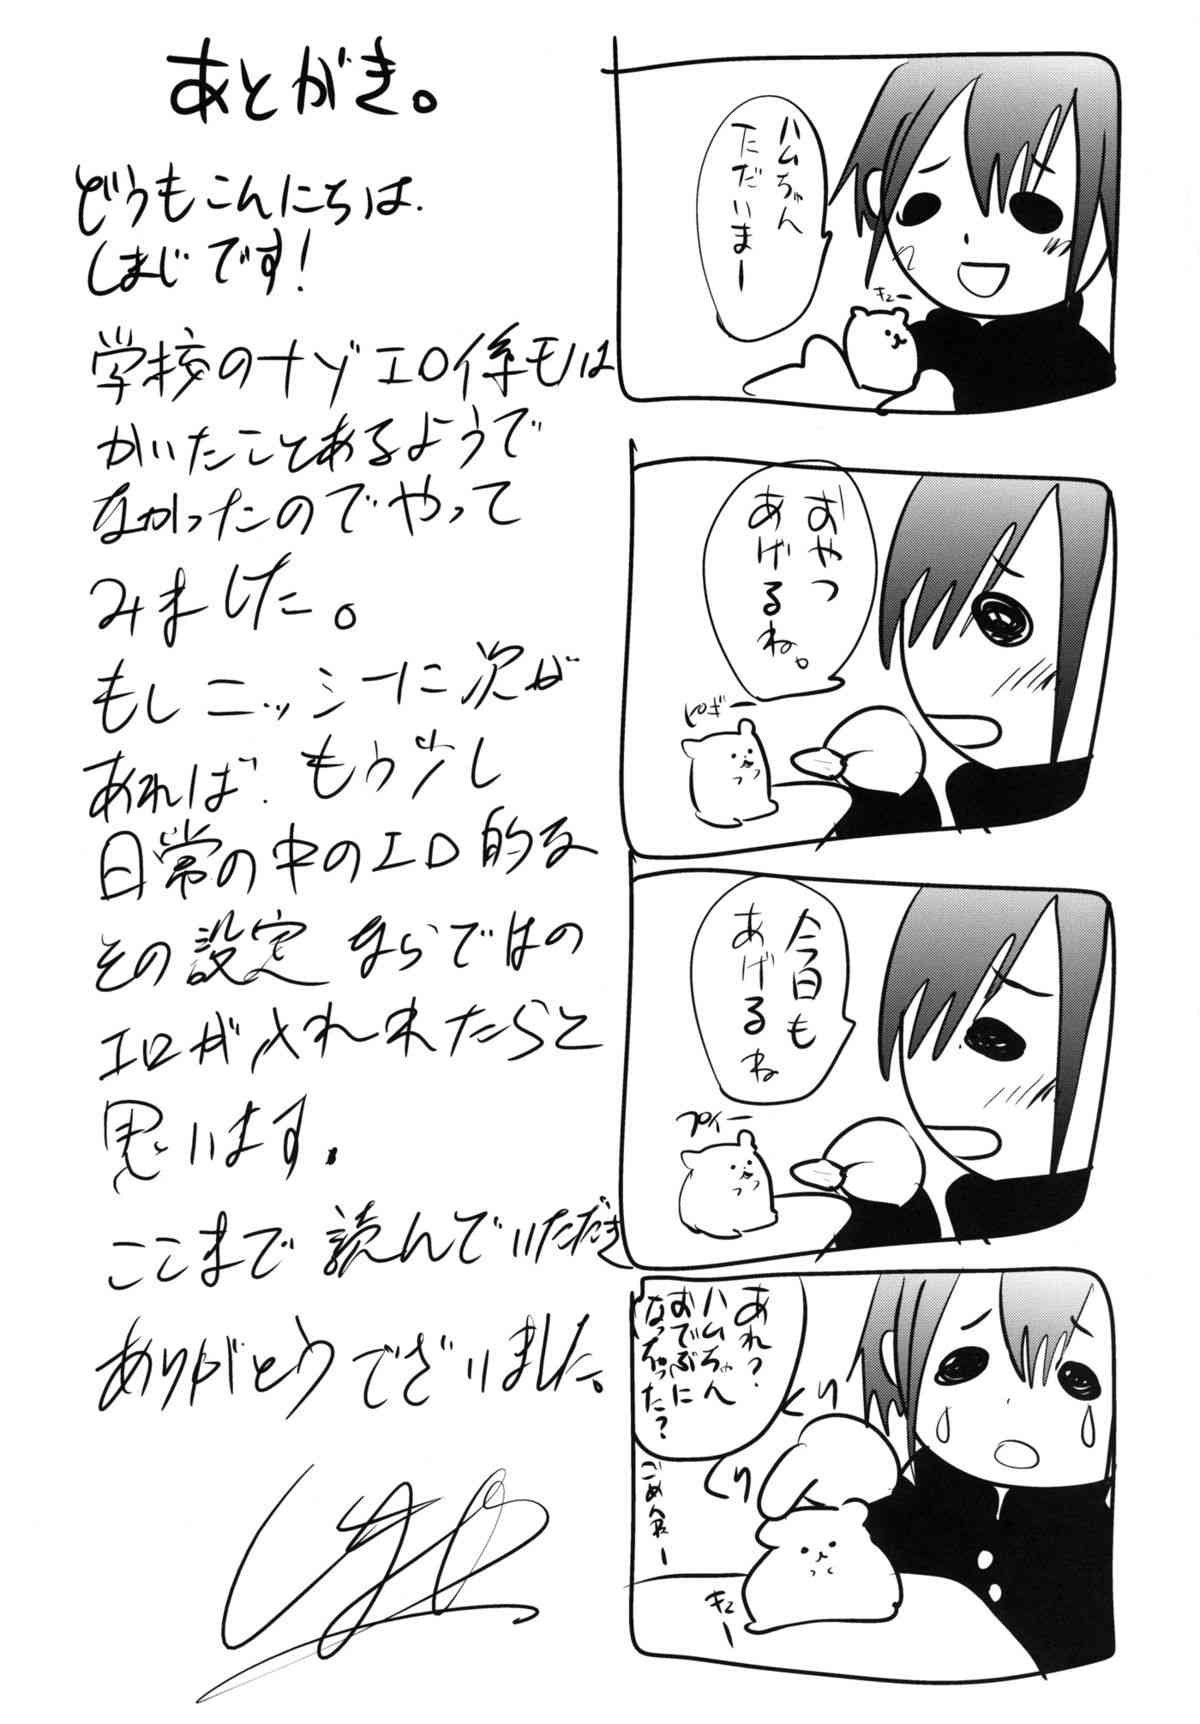 あとがき。
どうもこんにちは、
しまじです!
学校のナゾエロ係モノは
かいたことあるようで
なかったのでやって
みました。
もしニッシーに次が
あれば、もう少し
日常の中のエロ的な
その設定ならではの
エロがされれたらと
思います。
ここまで読んでいただき
ありがとうございました。
ハムちゃん
ただいまー
キュー
おやつ
あげるね。
ピギー
今日も
あげるね
プイー
あれ?
ハムちゃん
おでぶに
なっちゃった?
くり
くり
ごめんねー
キュー